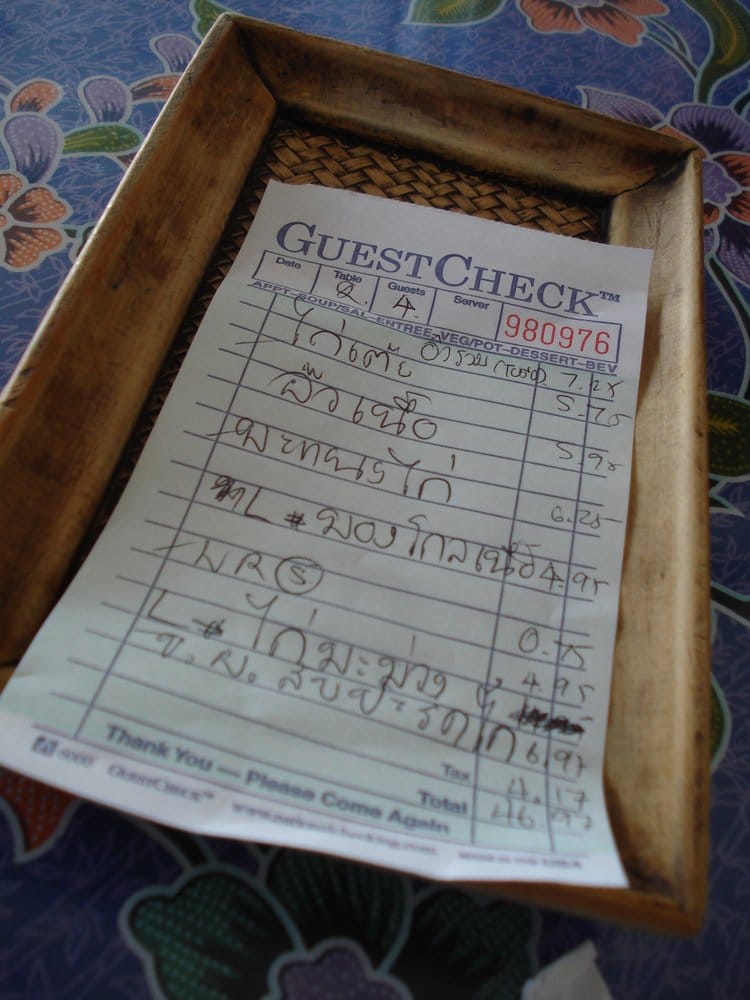 GUESTCHECK™
Date Table Guests Server
2 4 980976
APPT-SOUP/SAL-ENTREE-VEG/POT-DESSERT-BEV
ไก่เต้ย 7.25
5.75
ผัวเนื้อ
5.95
มะนาวไก่
6.25
L # มองโกลเนื้อ 4.95
WR S
0.75
L # ไก่มะม่วง 4.95
ข.ผ. สับปะรดไก่ 6.95
Tax 4.17
Total 46.97
Thank You — Please Come Again
GUESTCHECK™ www.nationalchecking.com MADE IN THE USA